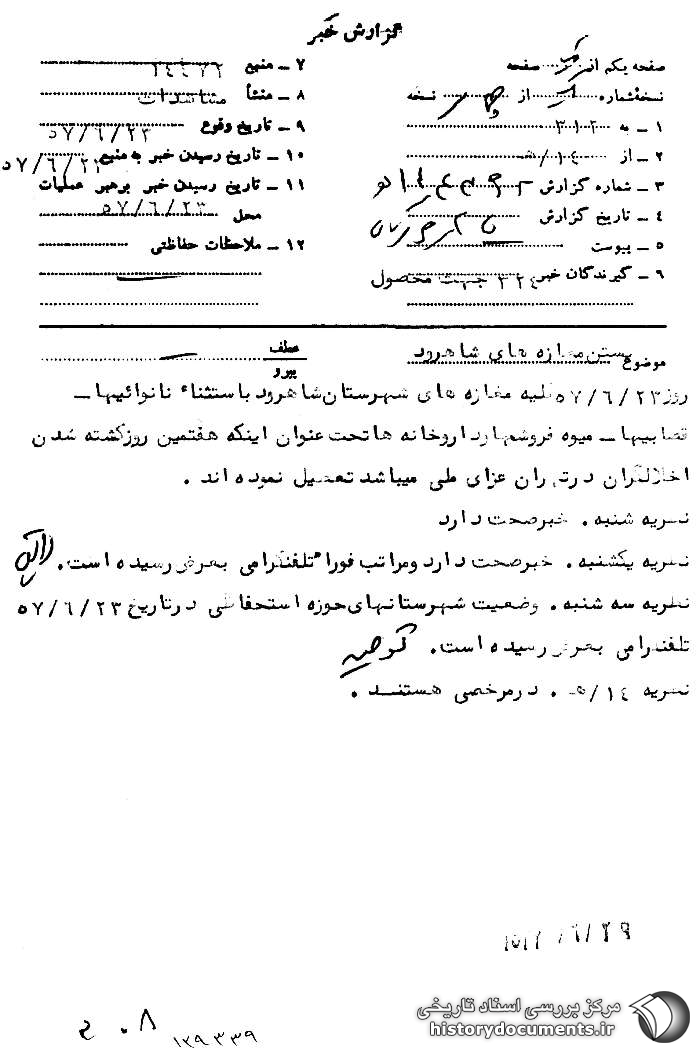 گزارش خبر
صفحه یکم از یک صفحه
نسخه شماره از چهار نسخه
۱ ـ به ۳۱۲
۲ ـ از ۱۴/هـ
۳ ـ شماره گزارش
۴ ـ تاریخ گزارش
۵ ـ پیوست
۶ ـ گیرندگان خبر ۳۲۴ جهت محصول
۷ ـ منبع
۸ ـ منشأ مشاهدات
۹ ـ تاریخ وقوع ۵۷/۶/۲۳
۱۰ ـ تاریخ رسیدن خبر به منبع ۵۷/۶/۲۳
۱۱ ـ تاریخ رسیدن خبر برهبر عملیات
محل ۵۷/۶/۲۳
۱۲ ـ ملاحظات حفاظتی
موضوع بستن مغازه های شاهرود
عطف
پیرو
روز ۵۷/۶/۲۳ کلیه مغازه های شهرستان شاهرود باستثناء نانوائیها ـ
قصابیها ـ میوه فروشیها و داروخانه ها تحت عنوان اینکه هفتمین روز کشته شدن
اخلالگران در تهران عزای ملی میباشد تعطیل نموده اند .
نظریه شنبه . خبر صحت دارد
نظریه یکشنبه . خبر صحت دارد ومراتب فورا" تلفنگرامی بعرض رسیده است .
نظریه سه شنبه . وضعیت شهرستانهای حوزه استحفاظی در تاریخ ۵۷/۶/۲۳
تلفنگرامی بعرض رسیده است .
نظریه ۱۴/هـ . در مرخصی هستند .
۰۸ ع
۱۲۹۳۳۹
مرکز بررسی اسناد تاریخی
historydocuments.ir